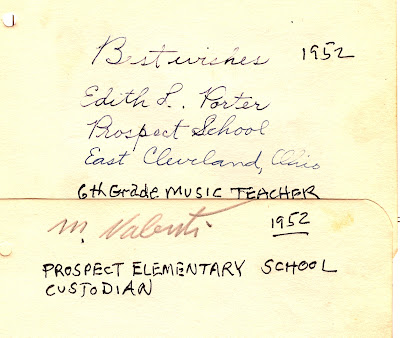 Best wishes 1952
Edith L. Porter
Prospect School
East Cleveland, Ohio
6th Grade MUSIC TEACHER
M. Valenti 1952
PROSPECT ELEMENTARY SCHOOL
CUSTODIAN